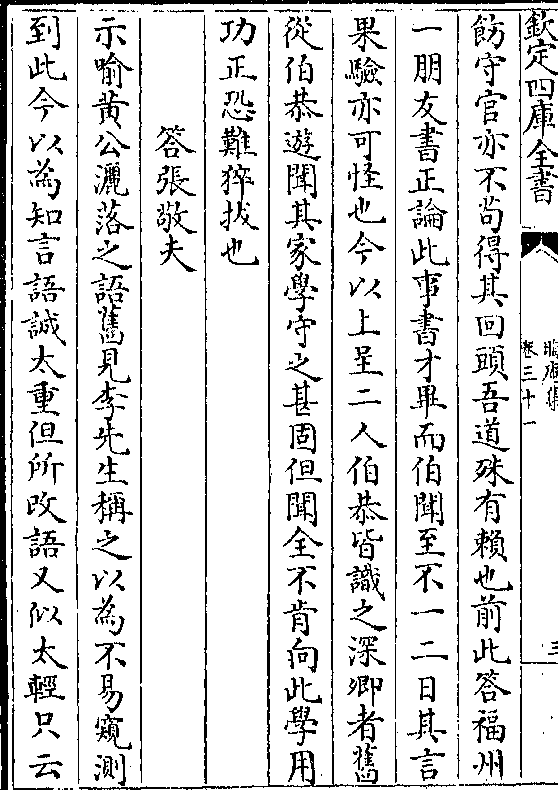 欽定四庫全書
卷三十一
三
飭守官亦不茍得其回頭吾道殊有賴也前此答福州
一朋友書正論此事書才畢而伯聞至不一二日其言
果驗亦可怪也今以上呈二人伯恭皆識之深卿者舊
從伯恭遊聞其家學守之甚固但聞全不肯向此學用
功正恐難猝拔也
答張敬夫
示喻黄公灑落之語舊見李先生稱之以為不易窺測
到此今以為知言語誠太重但所改語又似太輕只云